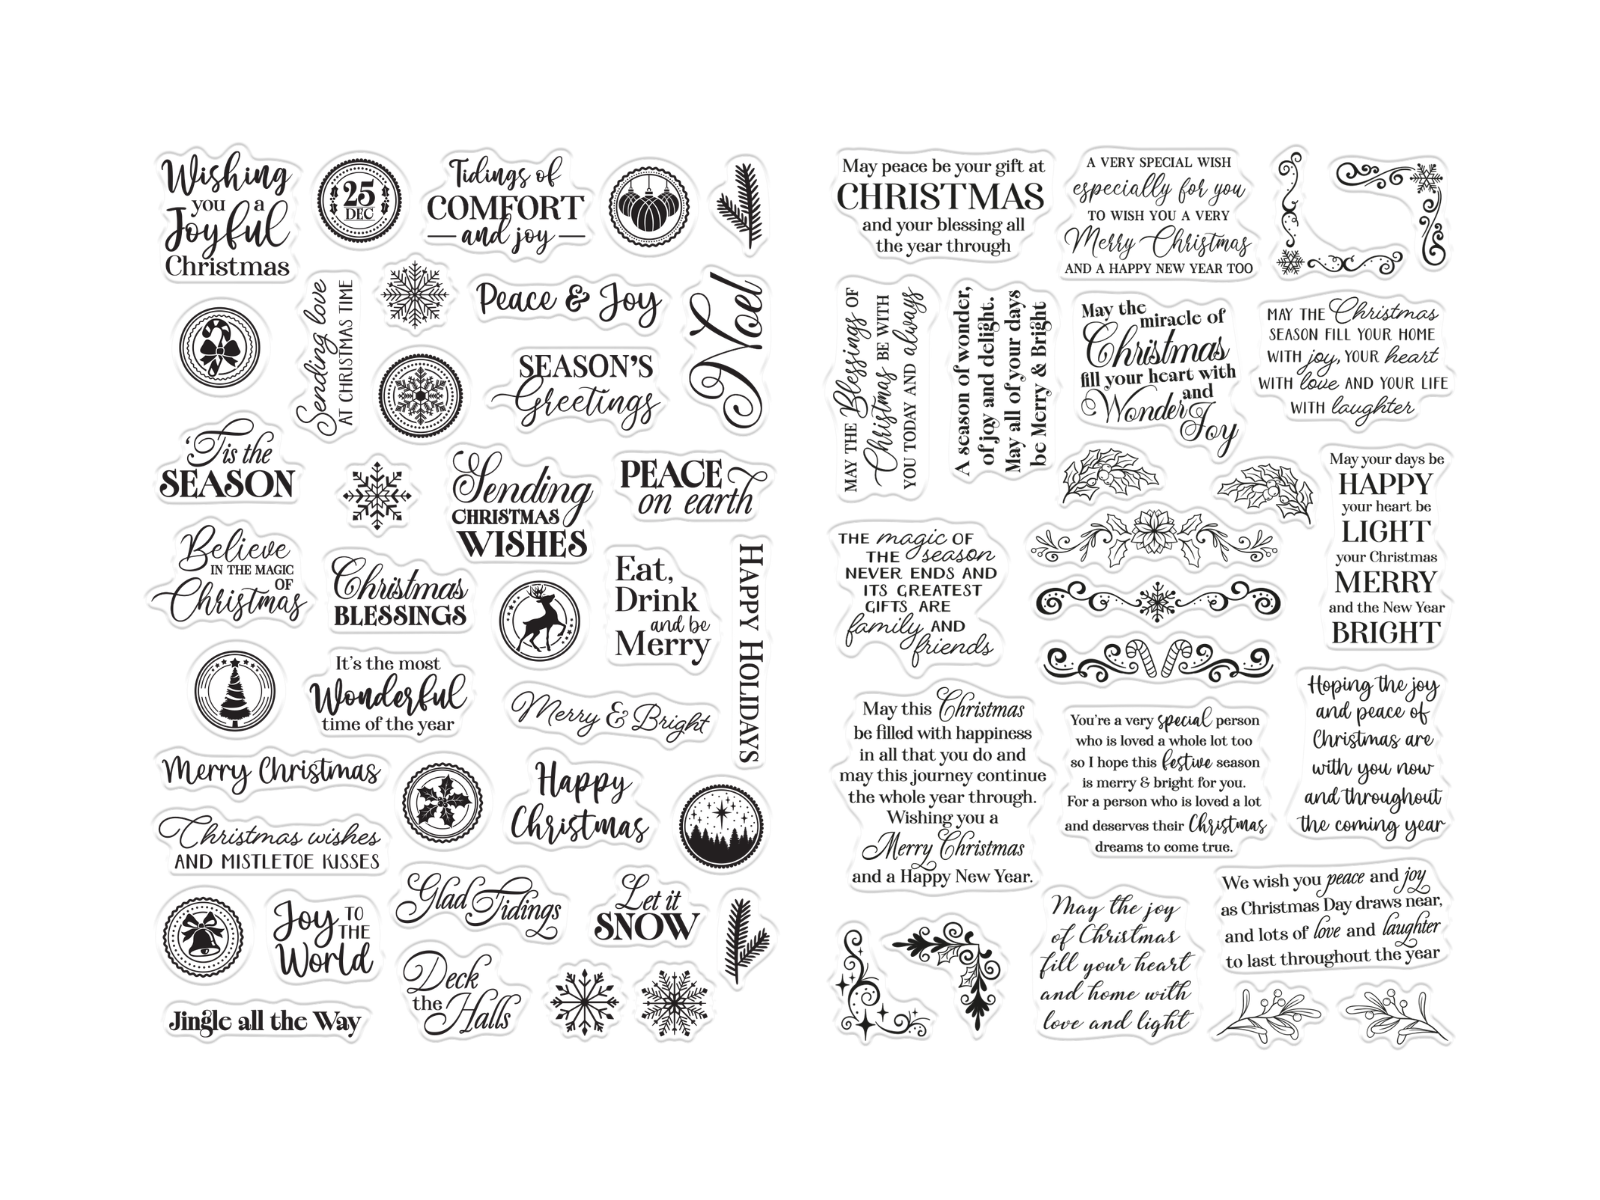 Wishing
you a
Joyful
Christmas
25
DEC
Tidings of
COMFORT
and joy
Sending love
AT CHRISTMAS TIME
Peace & Joy
Noel
SEASON'S
Greetings
'Tis the
SEASON
Sending
CHRISTMAS
WISHES
PEACE
on earth
Believe
IN THE MAGIC
OF
Christmas
Christmas
BLESSINGS
Eat,
Drink
and be
Merry
HAPPY HOLIDAYS
It's the most
Wonderful
time of the year
Merry & Bright
Merry Christmas
Happy
Christmas
Christmas wishes
AND MISTLETOE KISSES
Glad Tidings
Let it
SNOW
Joy TO
THE
World
Deck
the
Halls
Jingle all the Way
May peace be your gift at
CHRISTMAS
and your blessing all
the year through
A VERY SPECIAL WISH
especially for you
TO WISH YOU A VERY
Merry Christmas
AND A HAPPY NEW YEAR TOO
MAY THE Blessings OF
Christmas BE WITH
YOU TODAY AND always
A season of wonder,
of joy and delight.
May all of your days
be Merry & Bright
May the
miracle of
Christmas
fill your heart with
Wonder and
Joy
MAY THE Christmas
SEASON FILL YOUR HOME
WITH joy, YOUR heart
WITH love AND YOUR LIFE
WITH laughter
May your days be
HAPPY
your heart be
LIGHT
your Christmas
MERRY
and the New Year
BRIGHT
THE magic OF
THE season
NEVER ENDS AND
ITS GREATEST
GIFTS ARE
family AND
friends
May this Christmas
be filled with happiness
in all that you do and
may this journey continue
the whole year through.
Wishing you a
Merry Christmas
and a Happy New Year.
You're a very special person
who is loved a whole lot too
so I hope this festive season
is merry & bright for you.
For a person who is loved a lot
and deserves their Christmas
dreams to come true.
Hoping the joy
and peace of
Christmas are
with you now
and throughout
the coming year
May the joy
of Christmas
fill your heart
and home with
love and light
We wish you peace and joy
as Christmas Day draws near,
and lots of love and laughter
to last throughout the year